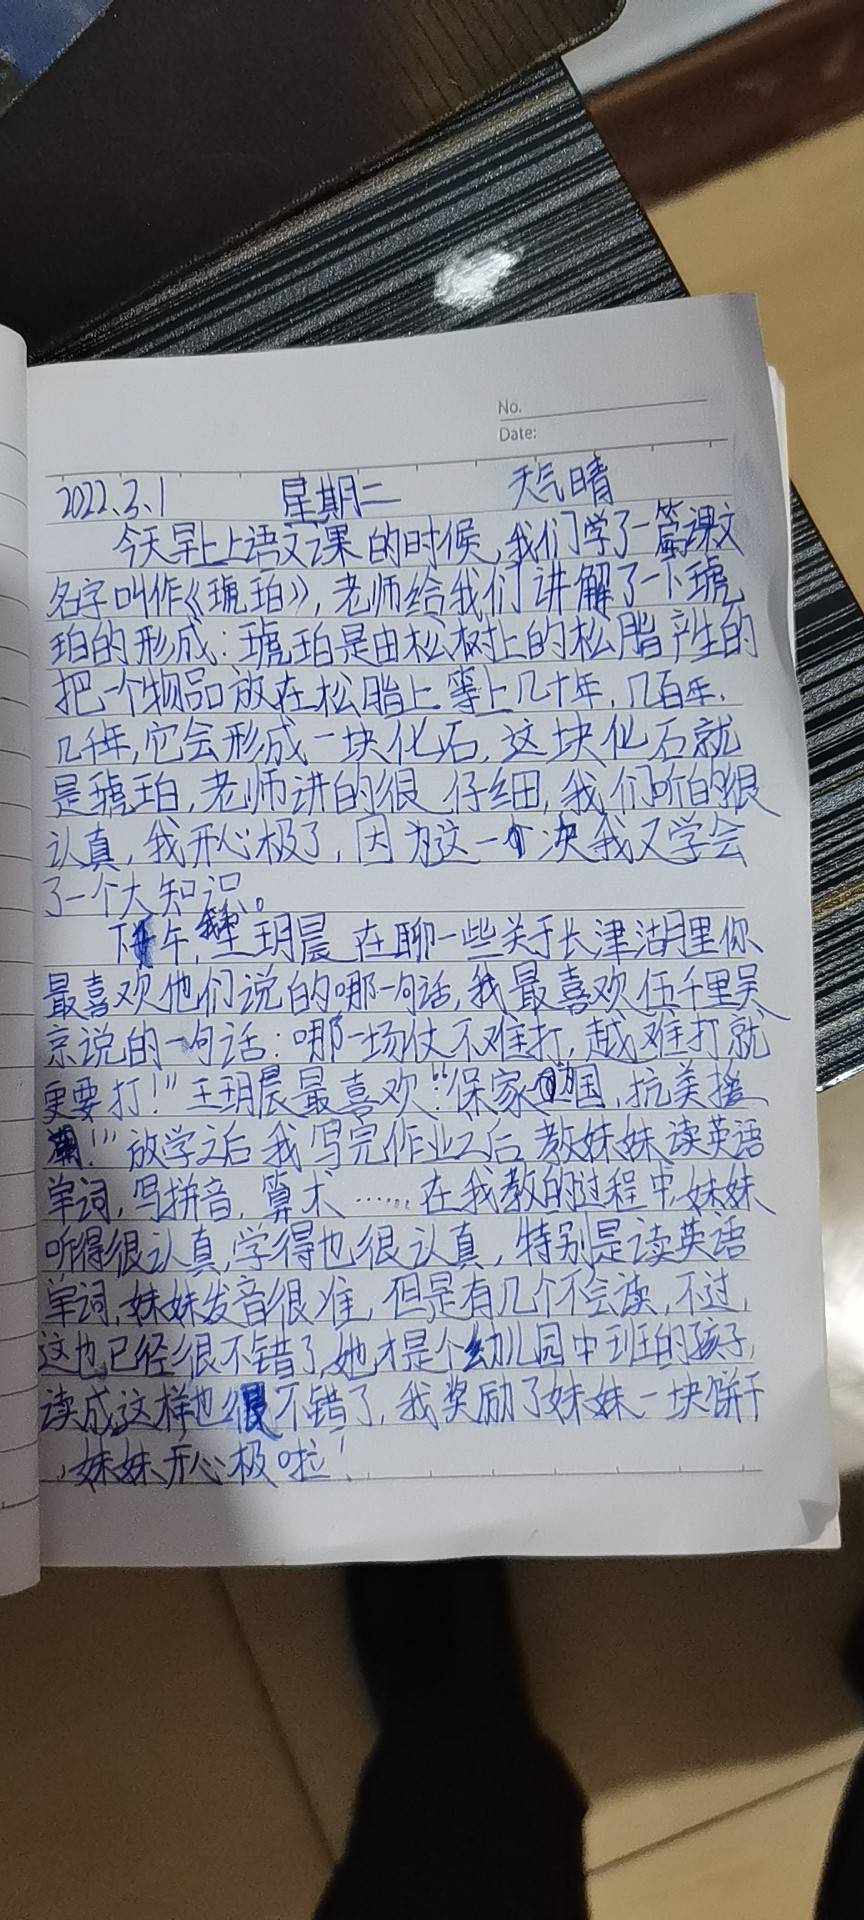 No.
Date:
2022.3.1 星期二 天气晴
今天早上上语文课的时候,我们学了一篇课文
名字叫作《琥珀》,老师给我们讲解了一下琥
珀的形成:琥珀是由松树上的松脂产生的
把一个物品放在松脂上等上几十年,几百年,
几千年,它会形成一块化石,这块化石就
是琥珀,老师讲的很仔细,我们听的很
认真,我开心极了,因为这一个决我又学会
了一个大知识。
下午,我和王玥晨在聊一些关于长津湖里你
最喜欢他们说的哪一句话,我最喜欢伍千里吴
京说的一句话:哪一场仗不难打,越难打就
更要打!”王玥晨最喜欢“保家国,抗美援
!”放学之后我写完作业之后教妹妹读英语
单词,写拼音,算术……在我教的过程中,妹妹
听得很认真,学得也很认真,特别是读英语
单词,妹妹发音很准,但是有几个不会读,不过,
这也已经很不错了,她才是个幼儿园中班的孩子,
读成这样也很不错了,我奖励了妹妹一块饼干
,妹妹开心极啦!